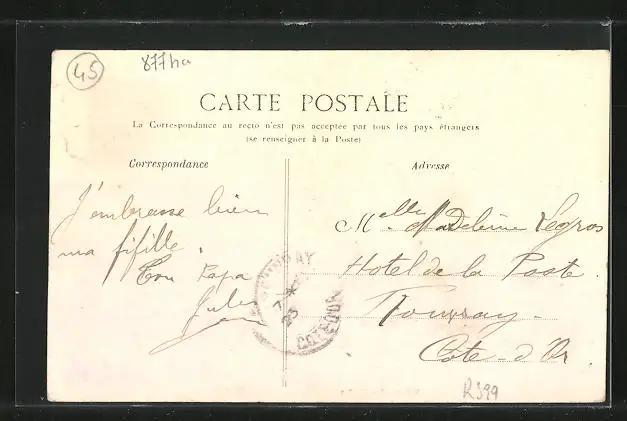 45
877ha
CARTE POSTALE
La Correspondance au recto n'est pas acceptée par tous les pays étrangers
(se renseigner à la Poste)
Correspondance
Adresse
J'embrasse bien
ma fifille.
Ton Papa
Jules
Melle Madeleine Legros
Hotel de la Poste
Côte-d'Or
COTE D'OR
R399